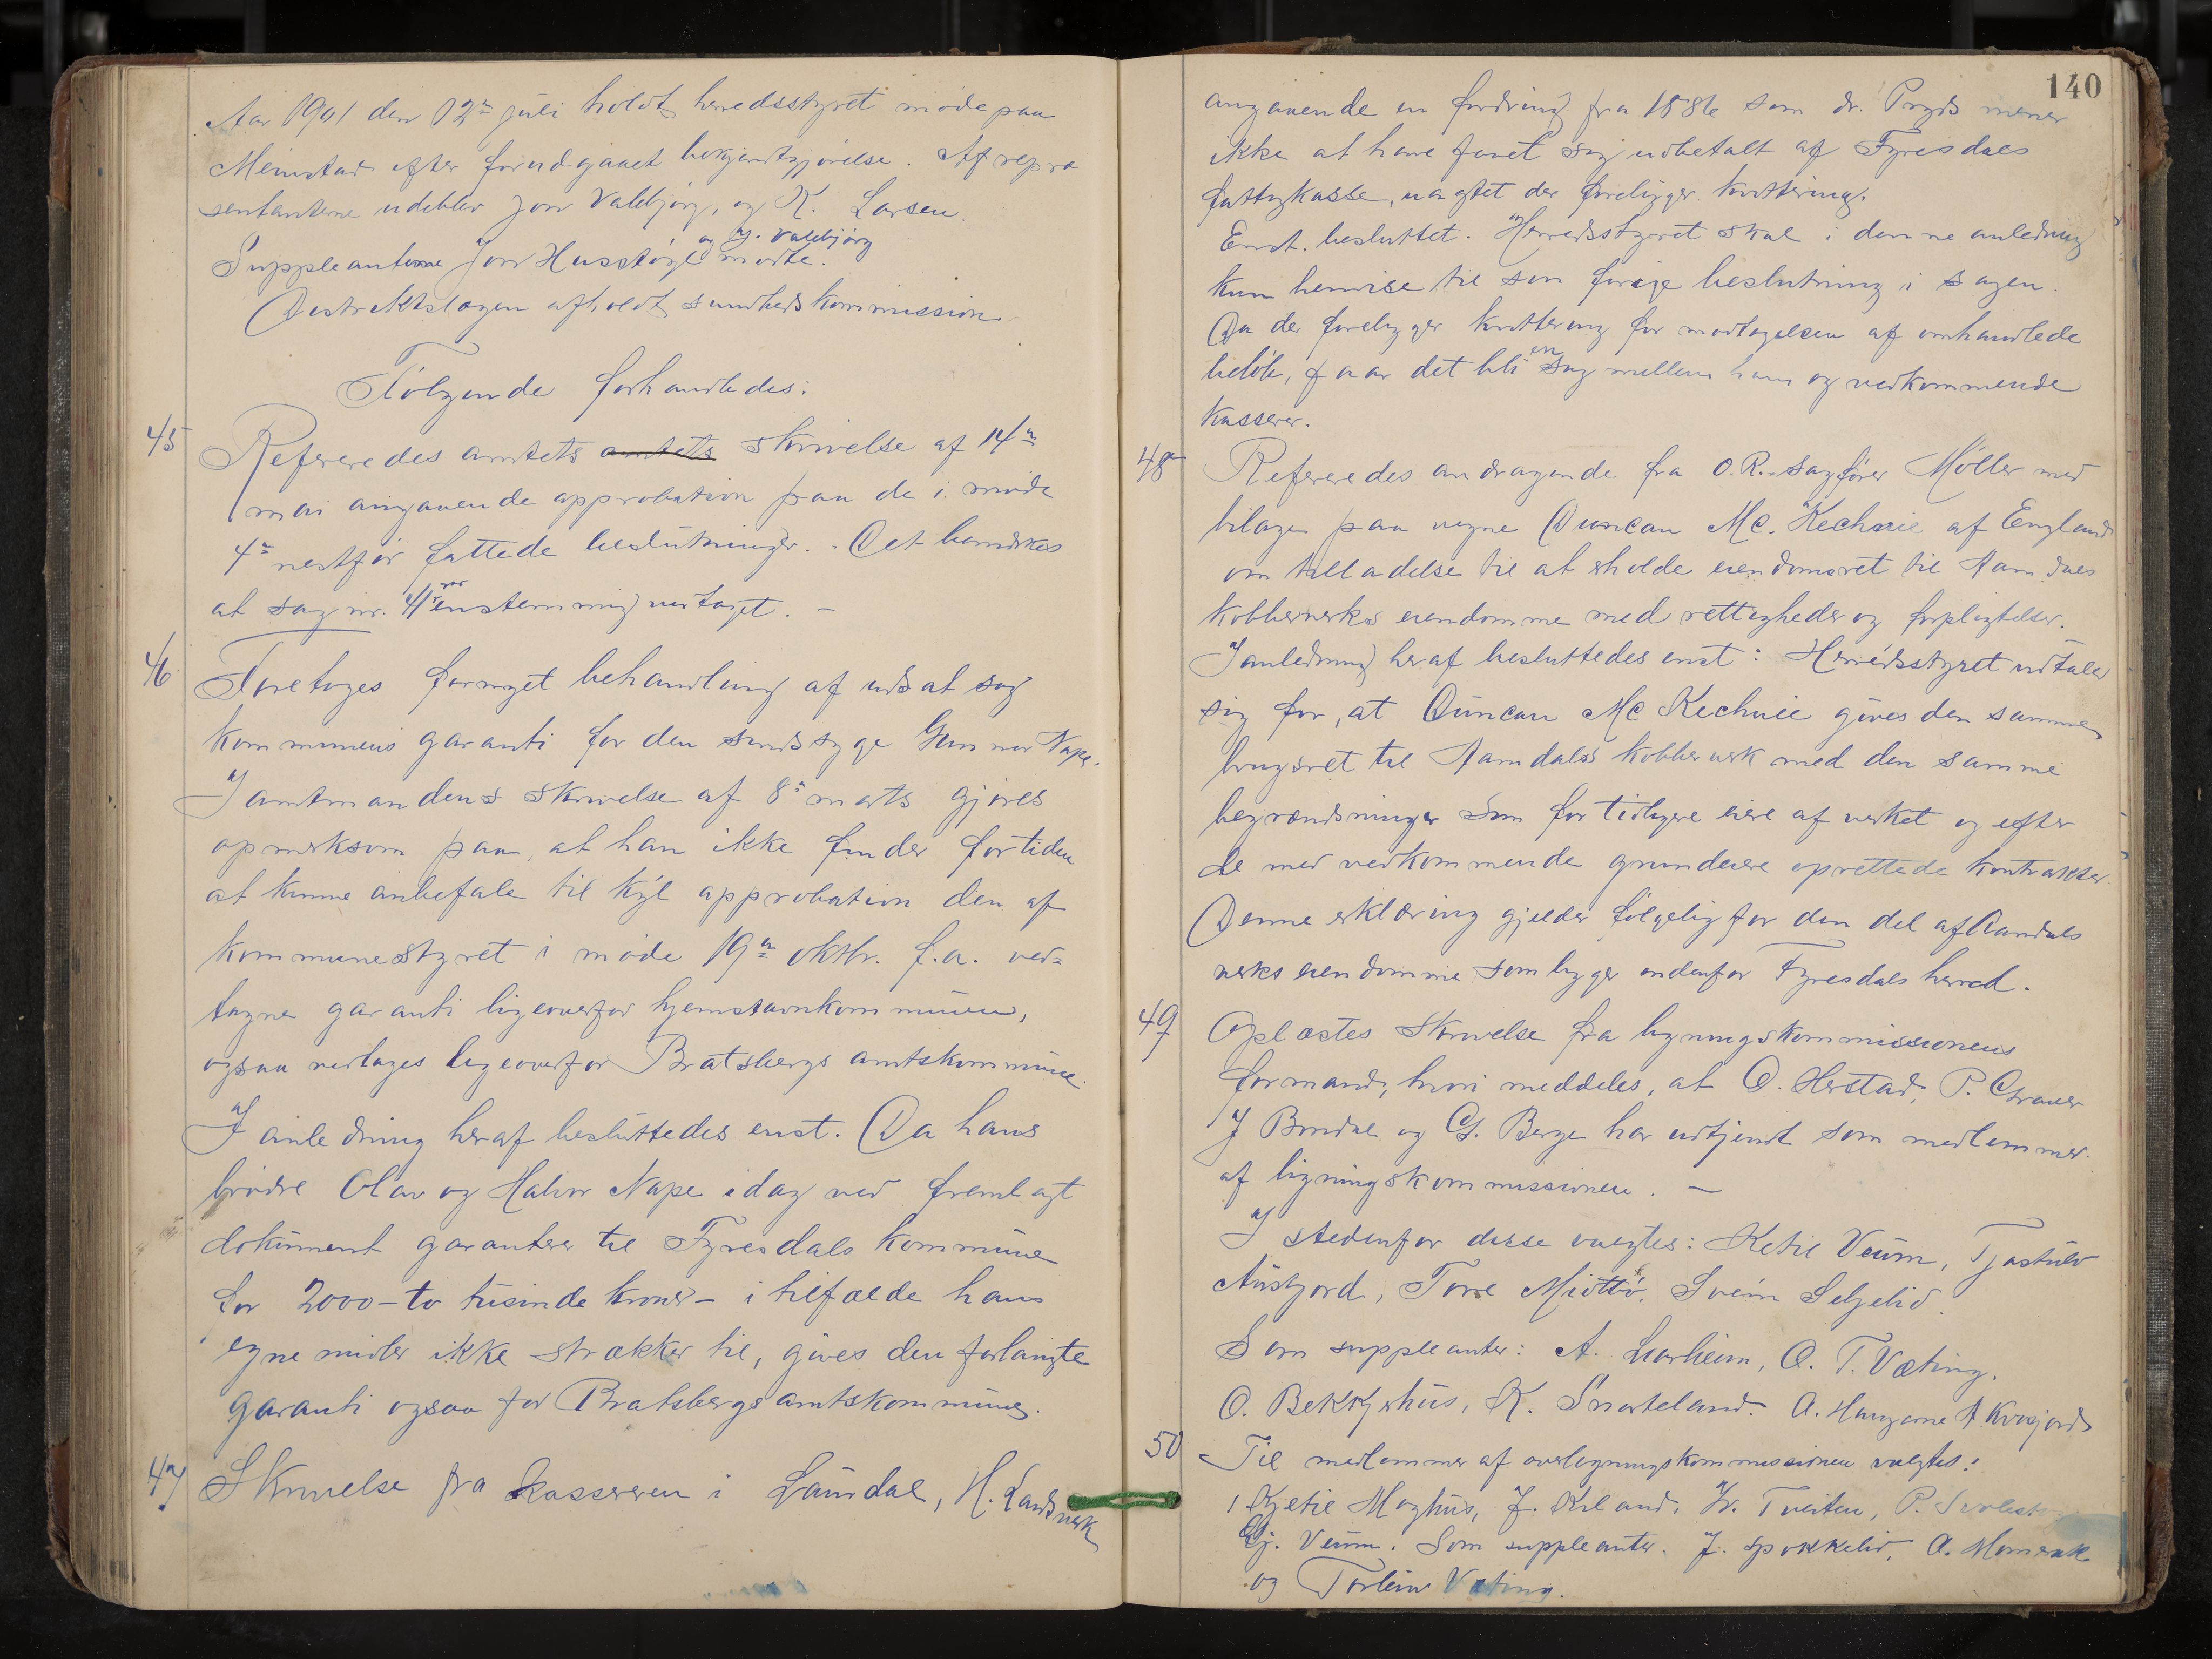 Aar 1901 den 12te juli holdt herredsstyret møde paa
Meinstad efter forudgaaet bekjendtgjørelse. Af repræ
sentanterne udeblev Jon Valebjørg, og K. Larsen.
og J. Valebjørg
Suppleanterne Jon Husstøyl mødte.
Distriktslægen afholdt sundhedskommission
Følgende forhandledes:
45 Refereredes amtets amtets skrivelse af 14de
mai angaaende approbation paa de i møde
4de nestfør fattede beslutninger. Det bemerkes
at sag nr. 41 var enstemmig vedtaget. –
46 Foretoges fornyet behandling af udsat sag
kommunens garanti for den sindssyge Gunnar Nape.
I amtmandens skrivelse af 8de marts gjøres
opmerksom paa, at han ikke finder fortiden
at kunne anbefale til kgl approbation den af
kommunestyret i møde 19de oktbr. f.a. ved=
tagne garanti ligeoverfor hjemstavnkommunen,
ogsaa vedtages ligeoverfor Bratsbergs amtskommune.
I anledning heraf besluttedes enst. Da hans
brødre Olav og Halvor Nape idag ved fremlagt
dokument garanterer til Fyresdals kommune
for 2000 – to tusinde kroner – i tilfælde hans
egne midler ikke strækker til, gives den forlangte
garanti ogsaa for Bratsbergs amtskommune.
47 Skrivelse fra kassereren i Laurdal, H. Landsverk
140
angaaende en fordring fra 1886 som dr. Pryds mener
ikke at have faaet sig udbetalt af Fyresdals
fattigkasse, uagtet der foreligger kvittering.
Enst. besluttet. Herredsstyret skal i denne anledning
kun henvise til son forrige beslutning i sagen.
Da der foreligger kvittering for modtagelsen af omhandlede
beløb, faar det bli en sag mellem ham og vedkommende
kasserer.
48 Refereredes andragende fra O.R. sagfører Møller med
bilage paa vegne Duncan Mc. Kechnie af England
om tilladelse til at erholde eiendomsret til Aamdals
kobberverks eiendomme med rettigheder og forpligtelser.
I anledning heraf besluttedes enst: Herredsstyret udtaler
sig for, at Duncan Mc Kechnie gives den samme
brugsret til Aamdals kobberverk med den samme
begrændsninger som for tidligere eiere af verket og efter
de med vedkommende grundeiere oprettede kontrakter.
Denne erklæring gjælder følgelig for den del af Aamdals
verks eiendomme som ligger indenfor Fyresdals herred.
49 Oplæstes skrivelse fra ligningskommissionens
formand, hvori meddeles, at O. Herstad, P. Graver
J Bondal og G. Berge har udtjendt som medlemmer
af ligningskommissionen. –
I stedenfor disse valgtes: Ketil Veum, Tjostulv
Austjord, Torre Midtbø, Svein Seljelid.
Som suppleanter: A. Lurheim, O. T. Væting.
O. Bekkjerhus, K. Snarteland. A. Haugane A Kvisjord
50 Til medlemmer af overligningskommissionen valgtes:
Kjetil Moghus, J. Kiland, H. Tveiten, P.
Gj. Veum. Som suppleanter. J. Spokkelid, A. Momrak
og Torleiv Væting.